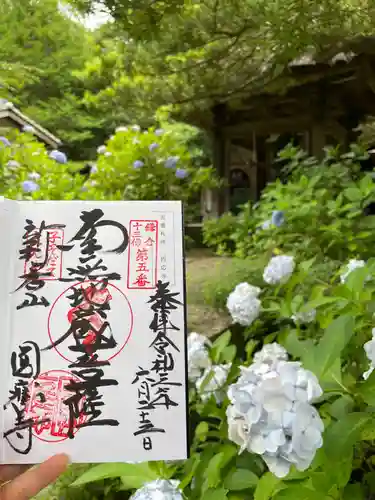 奉拝 令和三年
六月二十三日
鎌倉
十三佛
第五番
南無地蔵菩薩
新居山 圓應寺